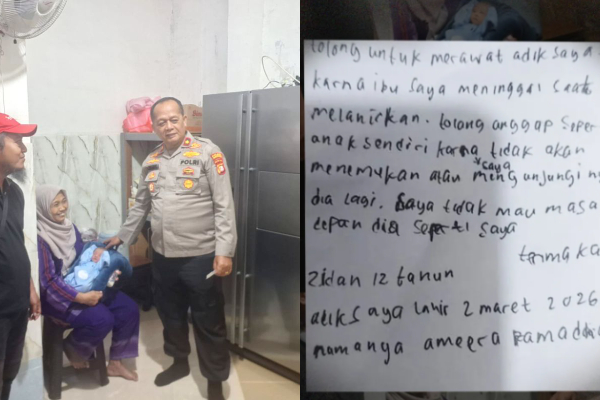 POLRI
tolong untuk merawat adik saya
karna ibu saya meninggal saat
melahirkan. tolong anggap seper
anak sendiri karna tidak akan
menemukan atau saya mengunjungi ny
dia lagi. saya tidak mau masa
depan dia seperti saya
termaka
Zidan 12 tahun
adik saya lahir 2 maret 2026
namanya ameera ramadh